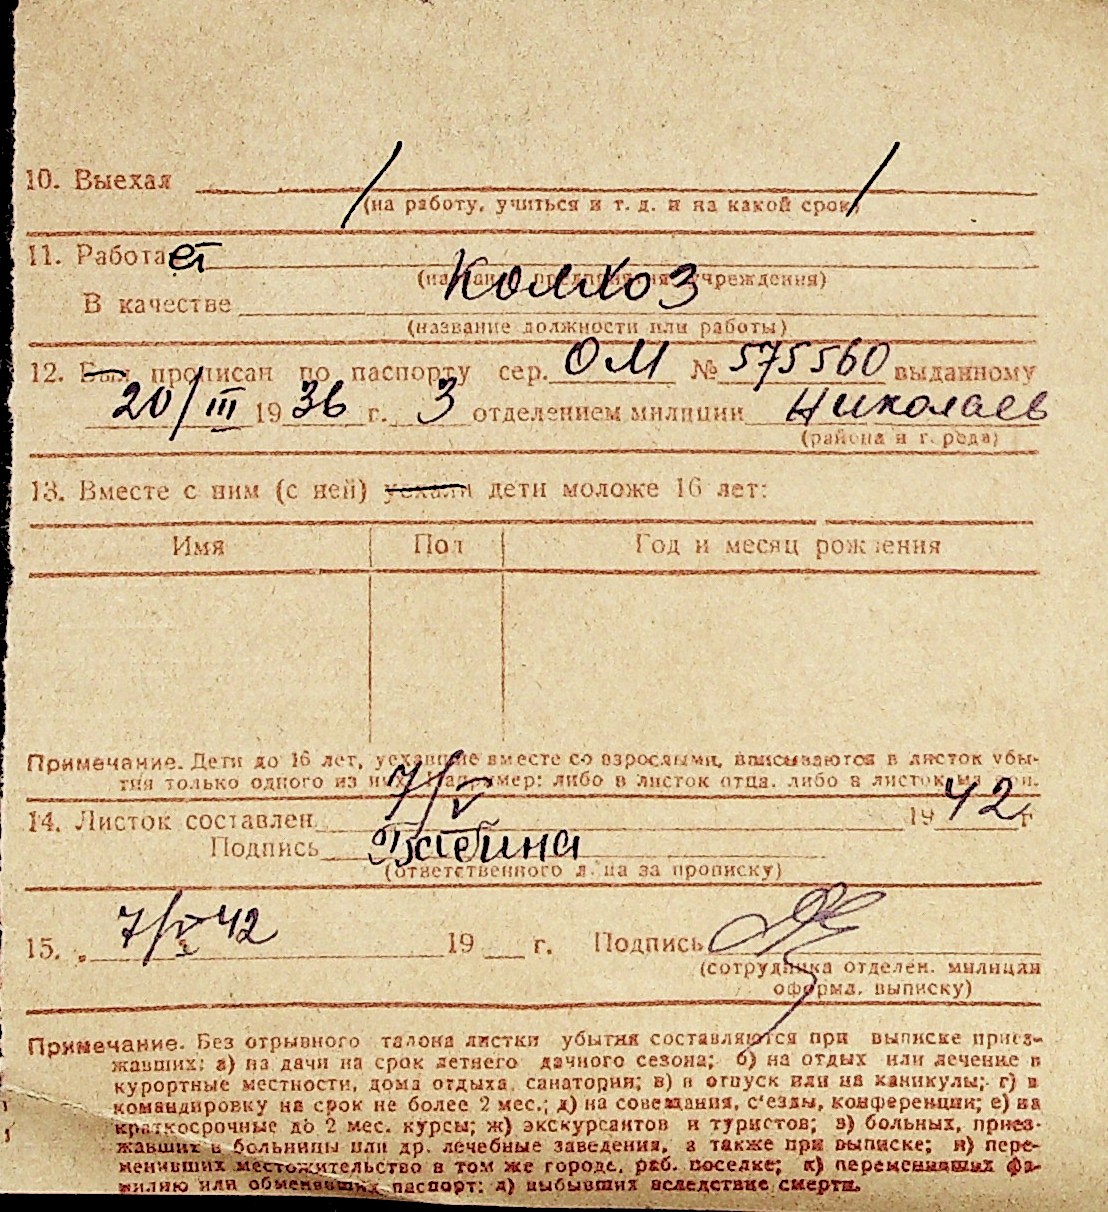 10. Выехал
(на работу, учиться и т. д. и на какой срок)
11. Работает
Колхоз
(название предприятия учреждения)
В качестве
(название должности или работы)
12. Был прописан по паспорту сер. ОМ № 575560 выданному
20/III 1936 г. 3 отделением милиции Николаев
(района и города)
13. Вместе с ним (с ней) уехали дети моложе 16 лет:
Имя Пол Год и месяц рождения
Примечание. Дети до 16 лет, уехавшие вместе со взрослыми, вписываются в листок убы-
тия только одного из них. Например: либо в листок отца, либо в листок матери.
14. Листок составлен 7/V 1942 г.
Подпись Бабина
(ответственного лица за прописку)
15. 7/V 42 19 г. Подпись
(сотрудника отделен. милиции
оформл. выписку)
Примечание. Без отрывного талона листки убытия составляются при выписке приез-
жавших: а) на дачи на срок летнего дачного сезона; б) на отдых или лечение в
курортные местности, дома отдыха, санатории; в) в отпуск или на каникулы; г) в
командировку на срок не более 2 мес.; д) на совещания, с'езды, конференции; е) на
краткосрочные до 2 мес. курсы; ж) экскурсантов и туристов; з) больных, приез-
жавших в больницы или др. лечебные заведения, а также при выписке; и) пере-
менивших местожительство в том же городе, раб. поселке; к) переменивших фа-
милию или обменявших паспорт; л) выбывших вследствие смерти.